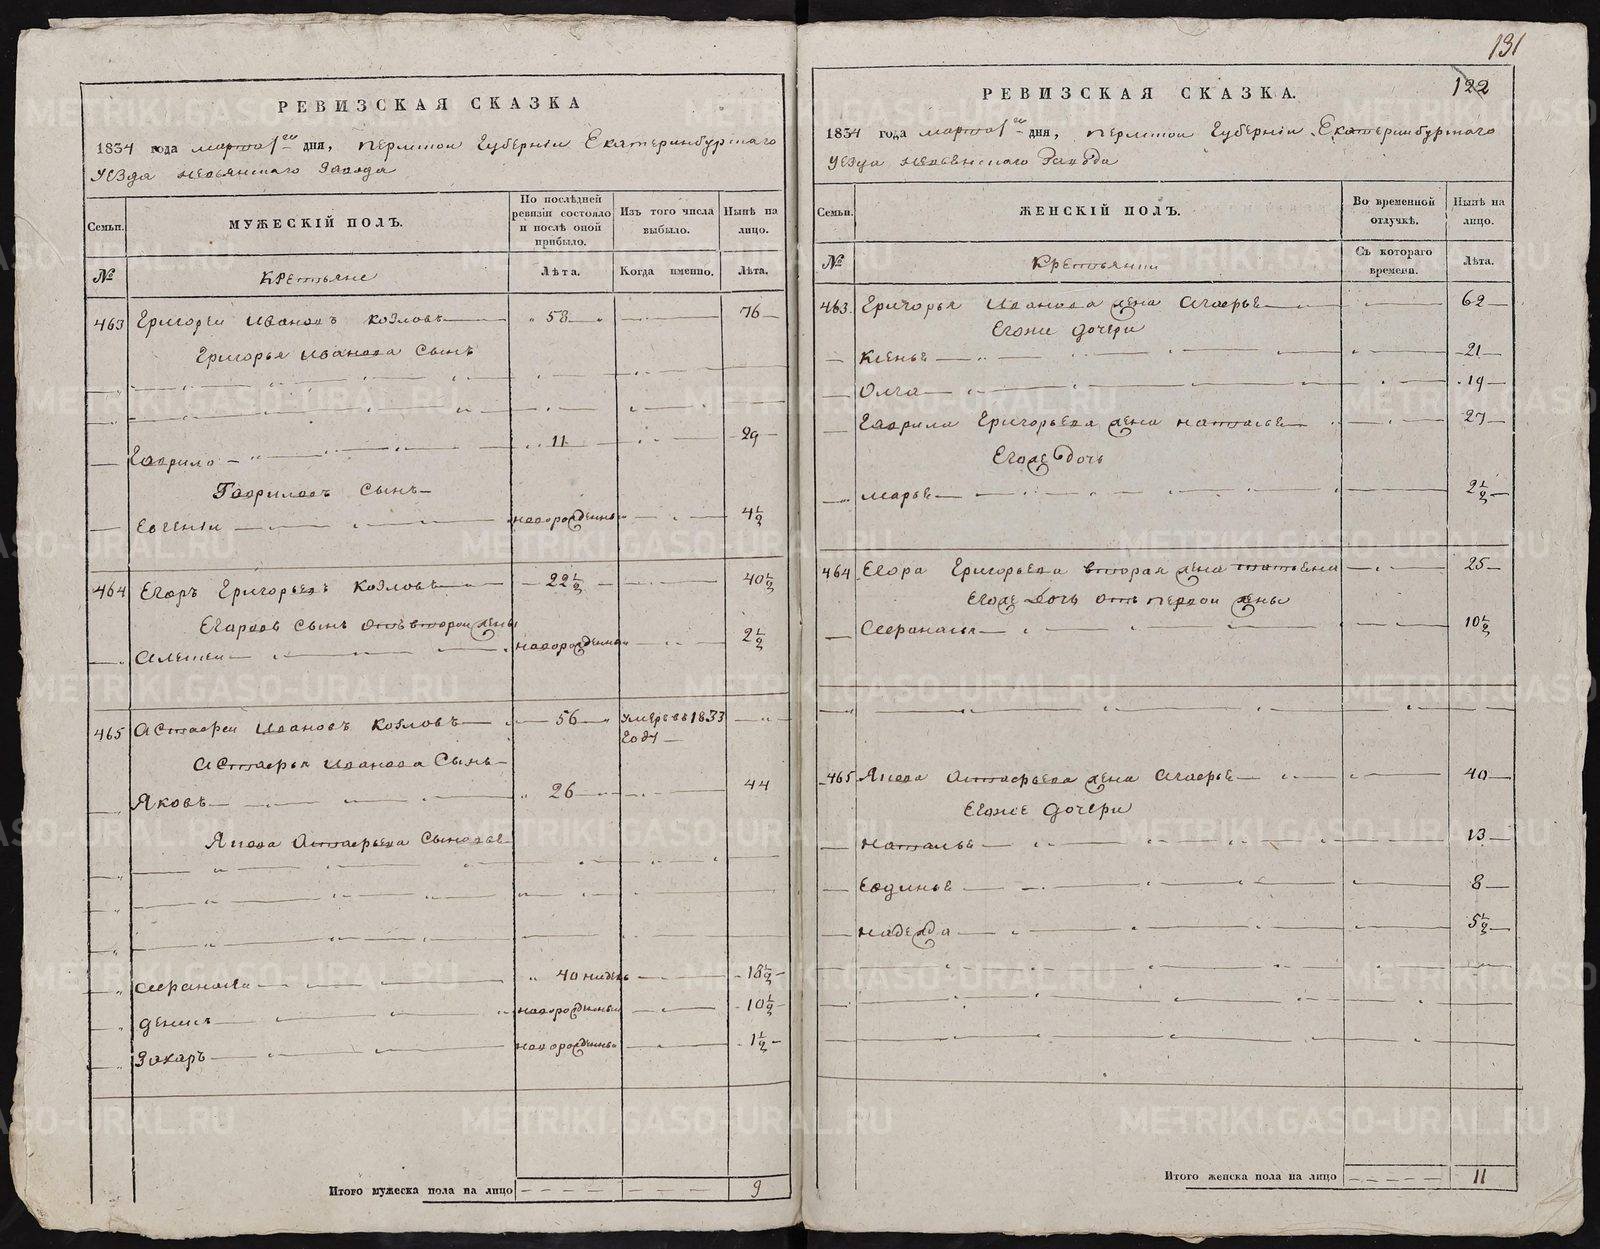 РЕВИЗСКАЯ СКАЗКА
1834 года марта 1го дня, Пермской Губерніи Екатеринбургскаго
уезда Невьянскаго Завода
Семьи.
МУЖЕСКІЙ ПОЛЪ.
По послѣдней ревизіи состояло и послѣ оной прибыло.
Изъ того числа выбыло.
Нынѣ на лицо.
№
Крестьяне
Лѣта.
Когда именно.
Лѣта.
463 Григореи Ивановъ Козловъ 58 76
Григорья Иванова Сынъ
Гаврило 11 29
Гавриловъ сынъ
Евгеніи новорожденный 4 1/2
464 Егоръ Григорьевъ Козловъ 22 1/2 40 1/2
Егоровъ сынъ отъ второи жены
Алексеи новорожденный 2 1/2
465 Астафеи Ивановъ Козловъ 56 умеръ въ 1833 году
Астафья Иванова Сынъ
Яковъ 26 44
Якова Астафьева Сыновье
Афанасеи 40 нидель 18 1/2
Денисъ новорожденный 10 1/2
Захаръ новорожденный 1 1/2
Итого мужеска пола на лицо 9
131
122
РЕВИЗСКАЯ СКАЗКА.
1834 года марта 1го дня, Пермской Губерніи Екатеринбургскаго
уезда Невьянскаго Завода
Семьи.
ЖЕНСКІЙ ПОЛЪ.
Во временной отлучкѣ.
Нынѣ на лицо.
№
Крестьянки
Съ котораго времени.
Лѣта.
463. Григорья Иванова жена Агафье 62
Егоже дочери
Ксенье 21
Олга 19
Гаврила Григорьева жена Наталье 27
Егоже дочь
Марье 2 1/2
464 Егора Григорьева вторая жена Татьена 25
Егоже дочь отъ первои жены
Афанасья 10 1/2
465 Якова Астафьева жена Агафье 40
Егоже дочери
Наталье 13
Евдинье 8
Надежда 5 1/2
Итого женска пола на лицо 11
METRIKI.GASO-URAL.RU